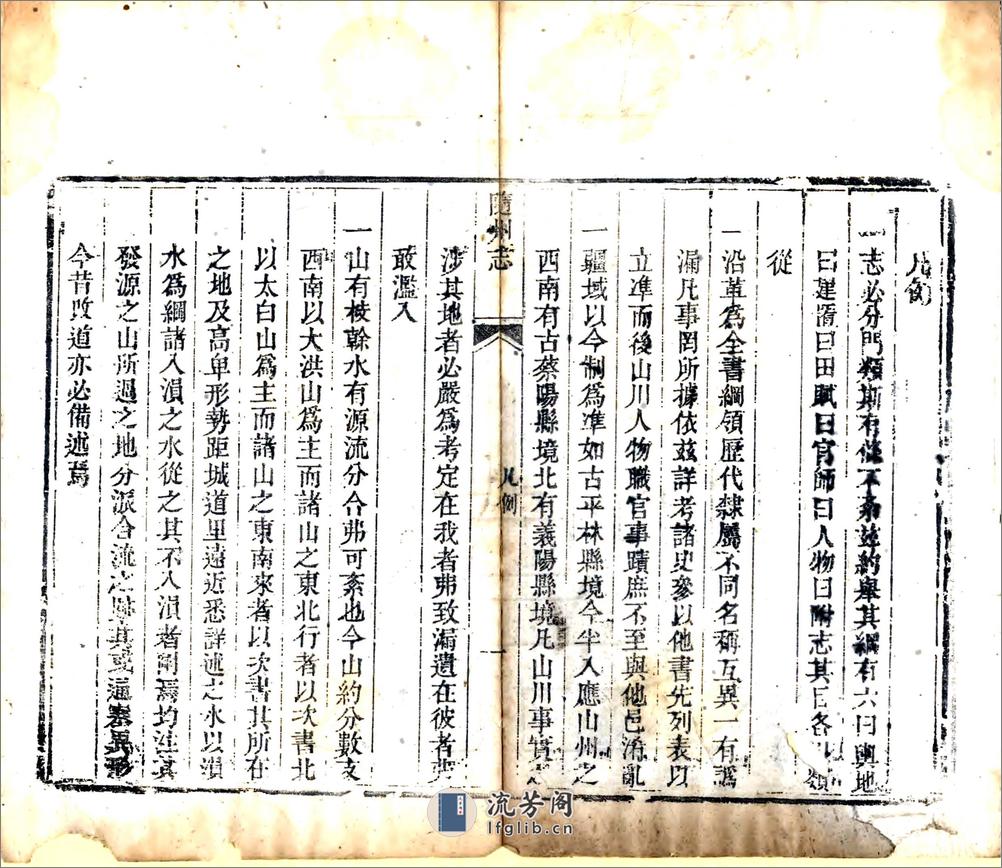 凡例
一志必分門類斯有條不紊茲約舉其綱有六曰輿地
曰建置曰田賦曰官師曰人物曰附志其目各以類
從
一沿革為全書綱領歷代隸屬不同名稱互異一有譌
漏凡事罔所據依茲詳考諸史參以他書先列表以
立準而後山川人物職官事蹟庶不至與他邑淆亂
一疆域以今制為準如古平林縣境今半入應山州之
西南有古蔡陽縣境北有義陽縣境凡山川事實
隨州志
凡例
一
涉其地者必嚴為考定在我者弗致漏遺在彼者弗
敢濫入
一山有棱幹水有源流分合弗可紊也今山約分數支
西南以大洪山為主而諸山之東北行者以次書北
以太白山為主而諸山之東南來者以次書其所在
之地及高卑形勢距城道里遠近悉詳述之水以溳
水為綱諸入溳之水從之其不入溳者附焉均注其
發源之山所過之地分派合流之歸其或逼塞異形
今昔改道亦必備述焉
流芳閣
lfglib.cn